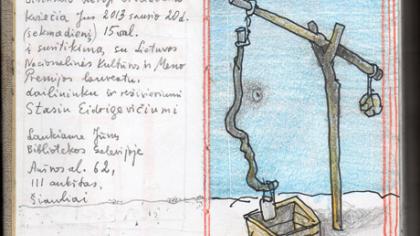 kviečia Jus 2013 sausio 20 d.
(sekmadienį) 15 val.
į susitikimą, su Lietuvos
Nacionalinės Kultūros ir Meno
Premijos laureatu.
dailininku ir režisieriumi
Stasiu Eidrigevičiumi
Laukiame Jūsų
Bibliotekos Galerijoje
Aušros al. 62,
III aukštas,
Šiauliai